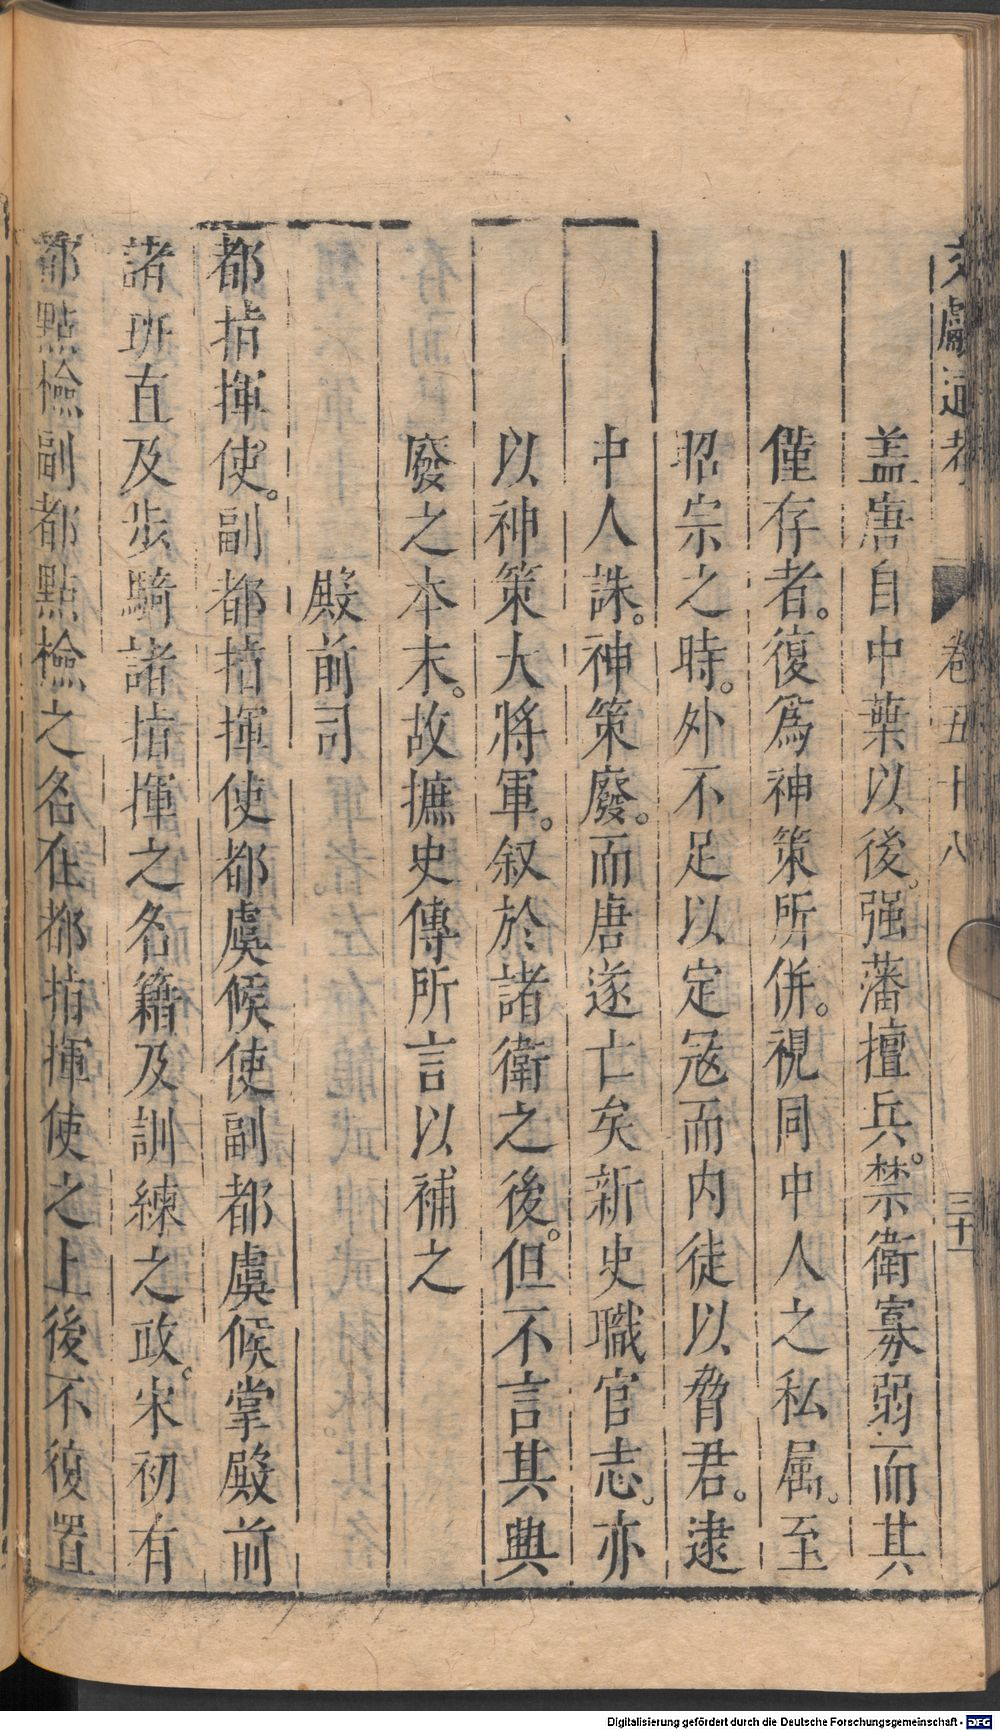 文獻通考 卷五十八 三十一
盖唐自中葉以後。强藩擅兵。禁衛寡弱而其
僅存者。復爲神策所併。視同中人之私属。至
昭宗之時。外不足以定冦而内徒以脅君。逮
中人誅。神策廢。而唐遂亡矣新史職官志。亦
以神策大將軍。叙於諸衛之後。但不言其典
廢之本末。故摭史傳所言以補之
殿前司
都指揮使。副都指揮使都虞候使副都虞候掌殿前
諸班直及步騎諸指揮之名籍及訓練之政。宋初有
都點檢副都點檢之名在都指揮使之上後不復置
Digitalisierung gefördert durch die Deutsche Forschungsgemeinschaft - DFG